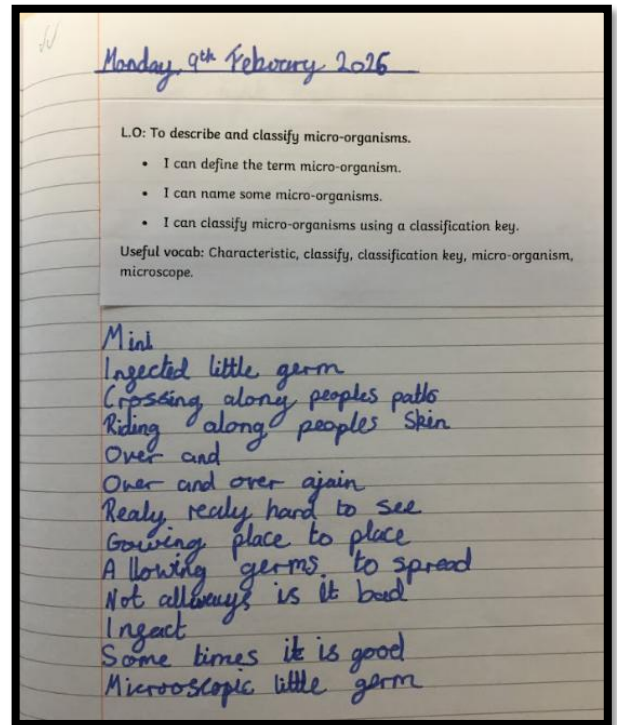 Monday, 9th Febuary 2026
L.O: To describe and classify micro-organisms.
• I can define the term micro-organism.
• I can name some micro-organisms.
• I can classify micro-organisms using a classification key.
Useful vocab: Characteristic, classify, classification key, micro-organism,
microscope.
Mini
Ingected little germ
Crossing along peoples paths
Riding along peoples skin
Over and
Over and over again
Realy realy hard to see
Gowing place to place
Allowing germs to spread
Not allways is it bad
Ingact
Some times it is good
Microoscopic little germ